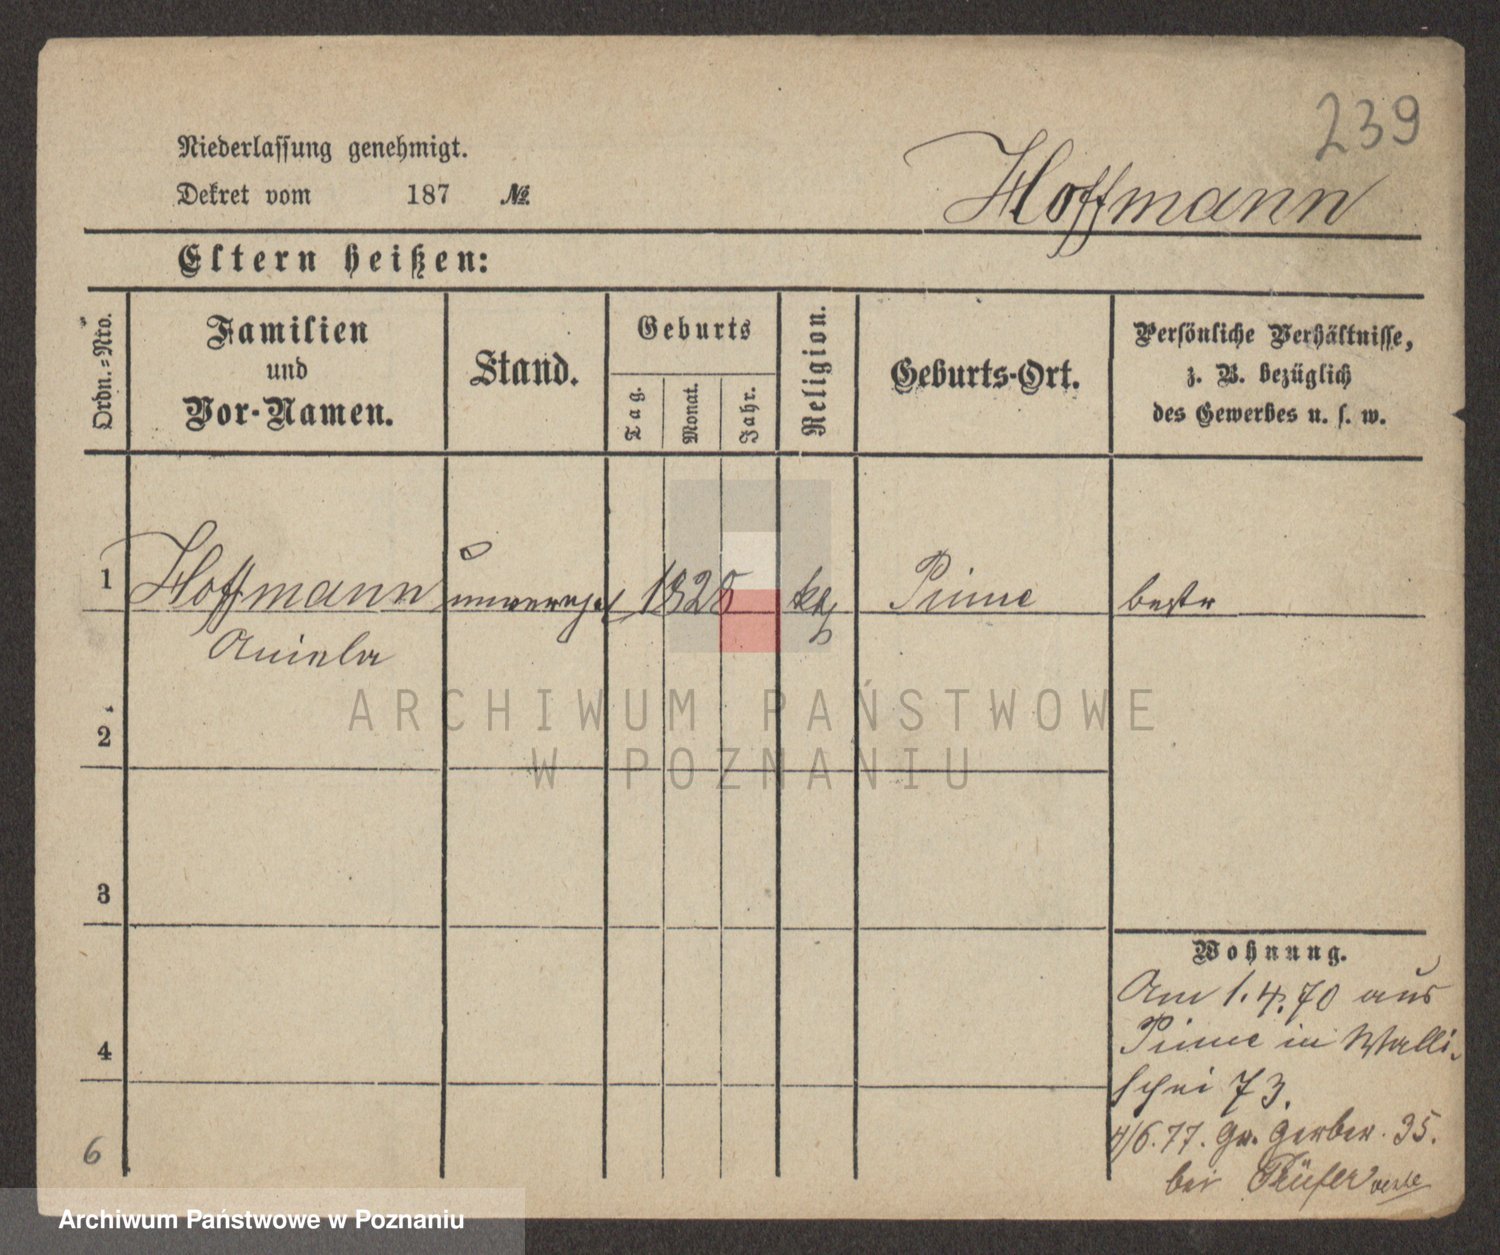 239
Niederlassung genehmigt.
Dekret vom 187 №.
Hoffmann
Eltern heißen:
Ordn.=Nro.
Familien
und
Vor-Namen.
Stand.
Geburts
Tag.
Monat.
Jahr.
Religion.
Geburts-Ort.
Persönliche Verhältnisse,
z. B. bezüglich
des Gewerbes u. s. w.
1 Hoffmann 1825 kth Pinne
Aniela
ARCHIWUM PAŃSTWOWE
W POZNANIU
2
3
Wohnung.
Am 1.4.70 aus
Pinne in Walli-
schei 73.
4
4/6.77. Gr. Gerber. 35.
bei
6
Archiwum Państwowe w Poznaniu